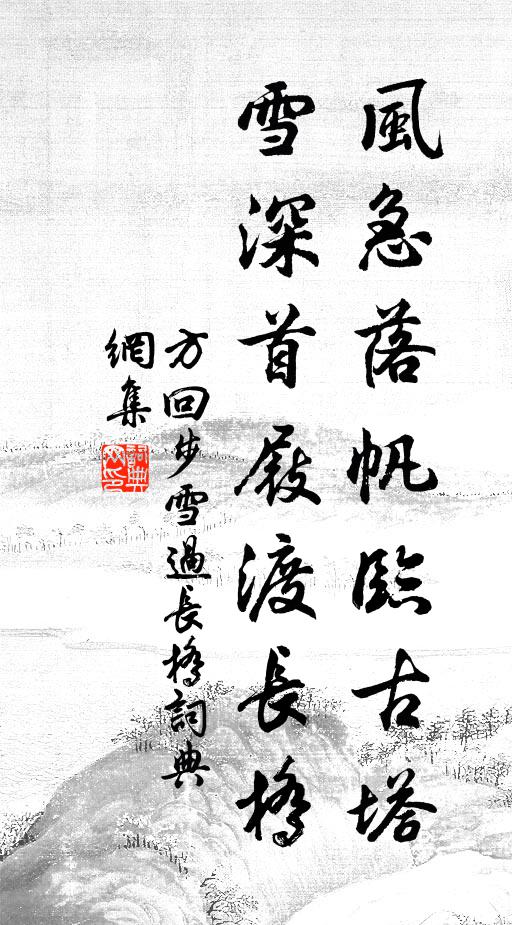 風急落帆臨古塔
雪深首屐渡長橋
方回步雪過長橋詞典
網集
詞典
网印